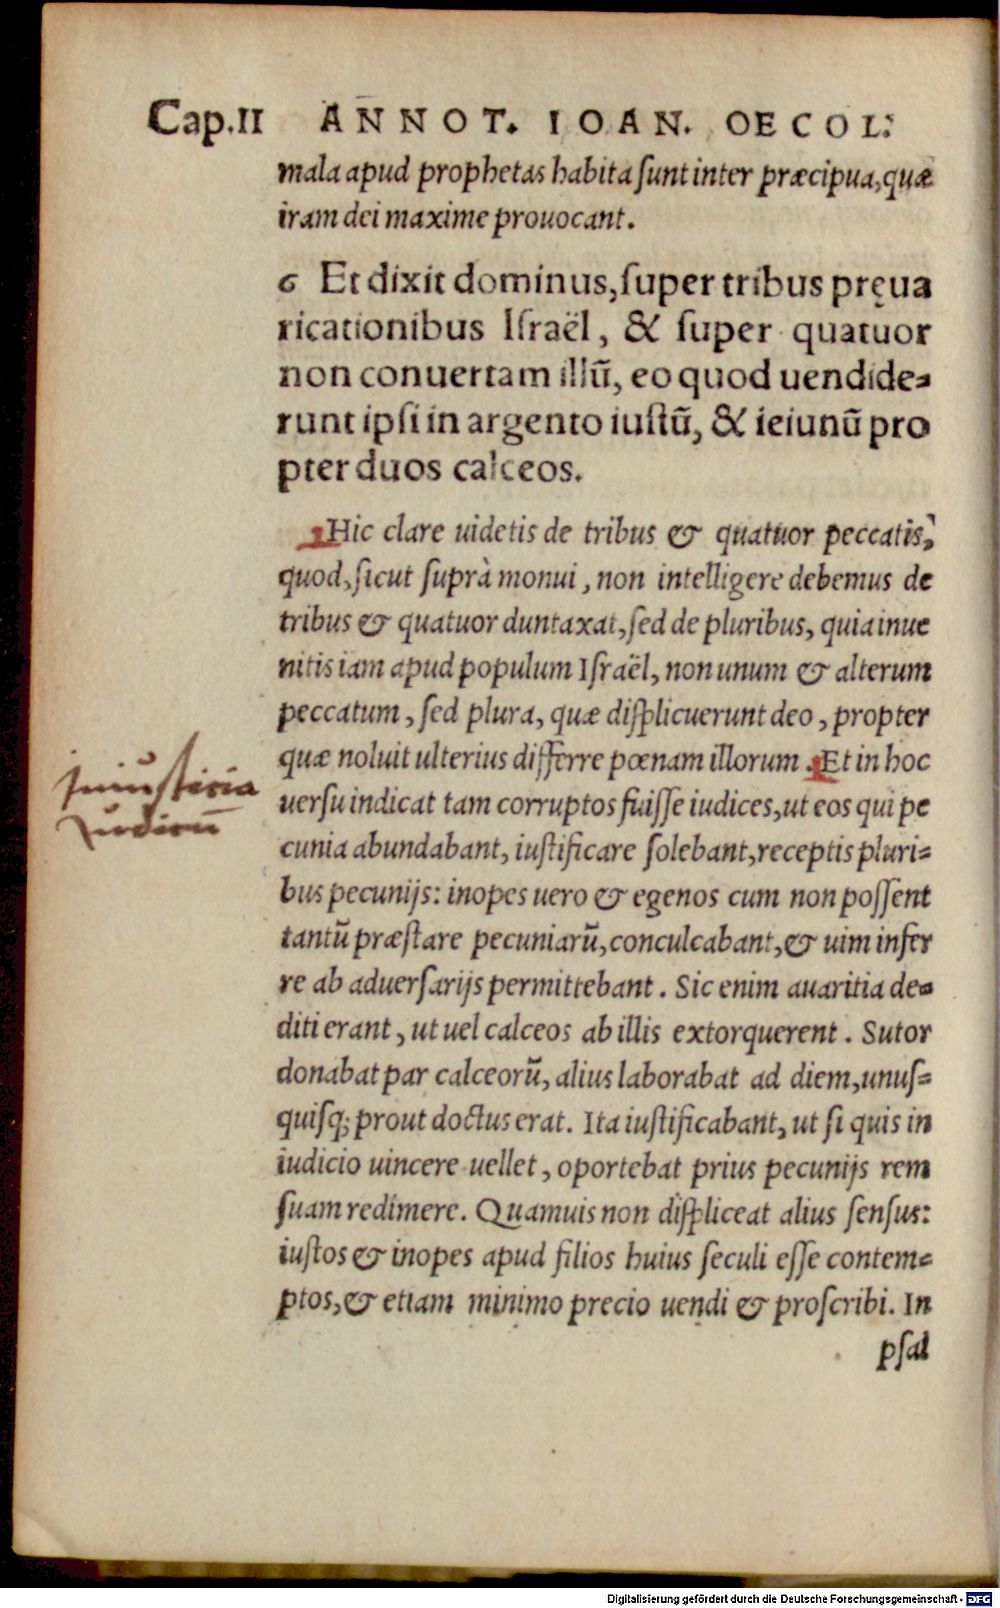 Cap.II ANNOT. IOAN. OECOL:
mala apud prophetas habita ſunt inter præcipua, quæ
iram dei maxime prouocant.
6 Et dixit dominus, ſuper tribus pręua
ricationibus Iſraël, & ſuper quatuor
non conuertam illũ, eo quod uendide-
runt ipſi in argento iuſtũ, & ieiunũ pro
pter duos calceos.
Hic clare uidetis de tribus & quatuor peccatis,
quod, ſicut ſuprà monui, non intelligere debemus de
tribus & quatuor duntaxat, ſed de pluribus, quia inue
nitis iam apud populum Iſraël, non unum & alterum
peccatum, ſed plura, quæ diſplicuerunt deo, propter
quæ noluit ulterius differre pœnam illorum. Et in hoc
uerſu indicat tam corruptos fuiſſe iudices, ut eos qui pe
cunia abundabant, iuſtificare ſolebant, receptis pluri-
bus pecunijs: inopes uero & egenos cum non poſſent
tantũ præſtare pecuniarũ, conculcabant, & uim infer
re ab aduerſarijs permittebant. Sic enim auaritia de-
diti erant, ut uel calceos ab illis extorquerent. Sutor
donabat par calceorũ, alius laborabat ad diem, unuſ-
quiſq; prout doctus erat. Ita iuſtificabant, ut ſi quis in
iudicio uincere uellet, oportebat prius pecunijs rem
ſuam redimere. Quamuis non diſpliceat alius ſenſus:
iuſtos & inopes apud filios huius ſeculi eſſe contem-
ptos, & etiam minimo precio uendi & proſcribi. In
pſal
iniuſticia
Iudicũ
Digitalisierung gefördert durch die Deutsche Forschungsgemeinschaft - DFG